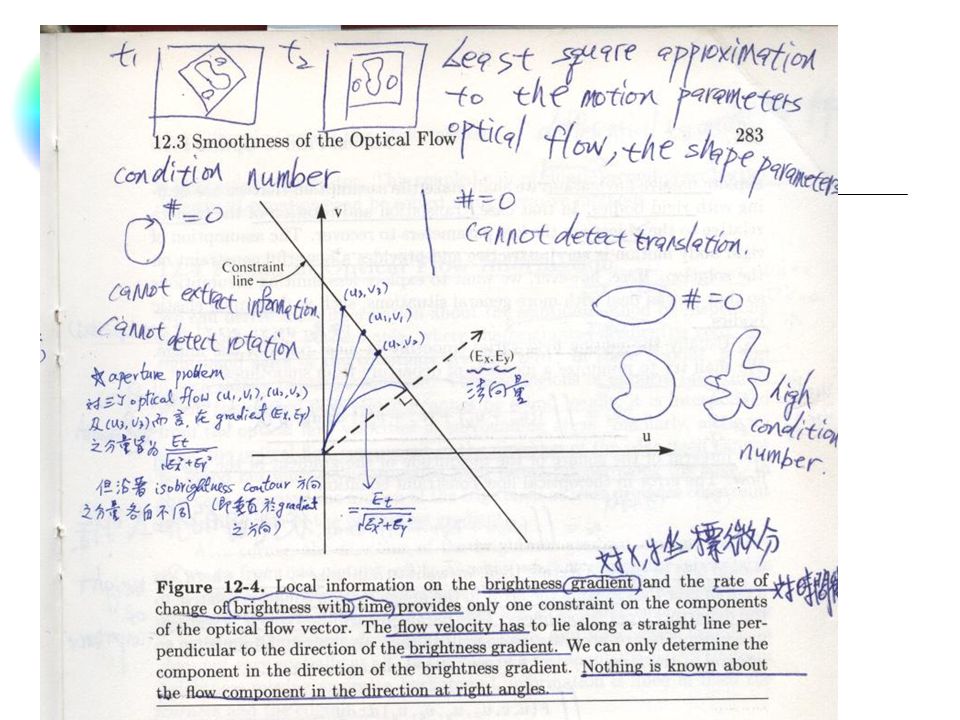 t₁
t₂
Least square approximation
to the motion parameters
optical flow, the shape parameters
12.3 Smoothness of the Optical Flow
283
condition number
#=0
v
#=0
cannot detect translation.
Constraint
line
(u₃, v₃)
(u₁, v₁)
(u₂, v₂)
cannot extract information
cannot detect rotation
(Ex, Ey)
法向量
#=0
high
condition
number.
u
☆ aperture problem
對三个 optical flow (u₁, v₁), (u₂, v₂)
及 (u₃, v₃) 而言, 在 gradient (Ex, Ey)
之分量皆為 Et/√Ex²+Ey²
但沿著 isobrightness contour 方向
之分量各自不同 (即垂直於 gradient
之方向)
= Et/√Ex²+Ey²
對X,Y坐標微分
對時間
Figure 12-4. Local information on the brightness gradient and the rate of
change of brightness with time provides only one constraint on the components
of the optical flow vector. The flow velocity has to lie along a straight line per-
pendicular to the direction of the brightness gradient. We can only determine the
component in the direction of the brightness gradient. Nothing is known about
the flow component in the direction at right angles.